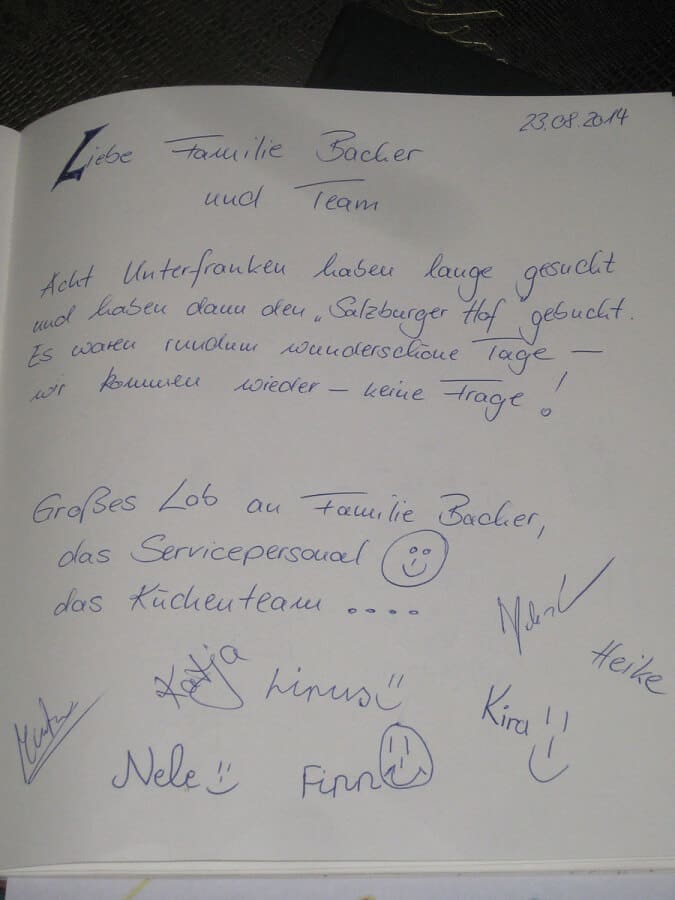 23.08.2014
Liebe Familie Bacher
und Team
Acht Unterfranken haben lange gesucht
und haben dann den „Salzburger Hof" gebucht.
Es waren rundum wunderschöne Tage –
wir kommen wieder – keine Frage!
Großes Lob an Familie Bacher,
das Servicepersonal
das Küchenteam ....
Heike
Katja Linus
Kira
Nele Finn